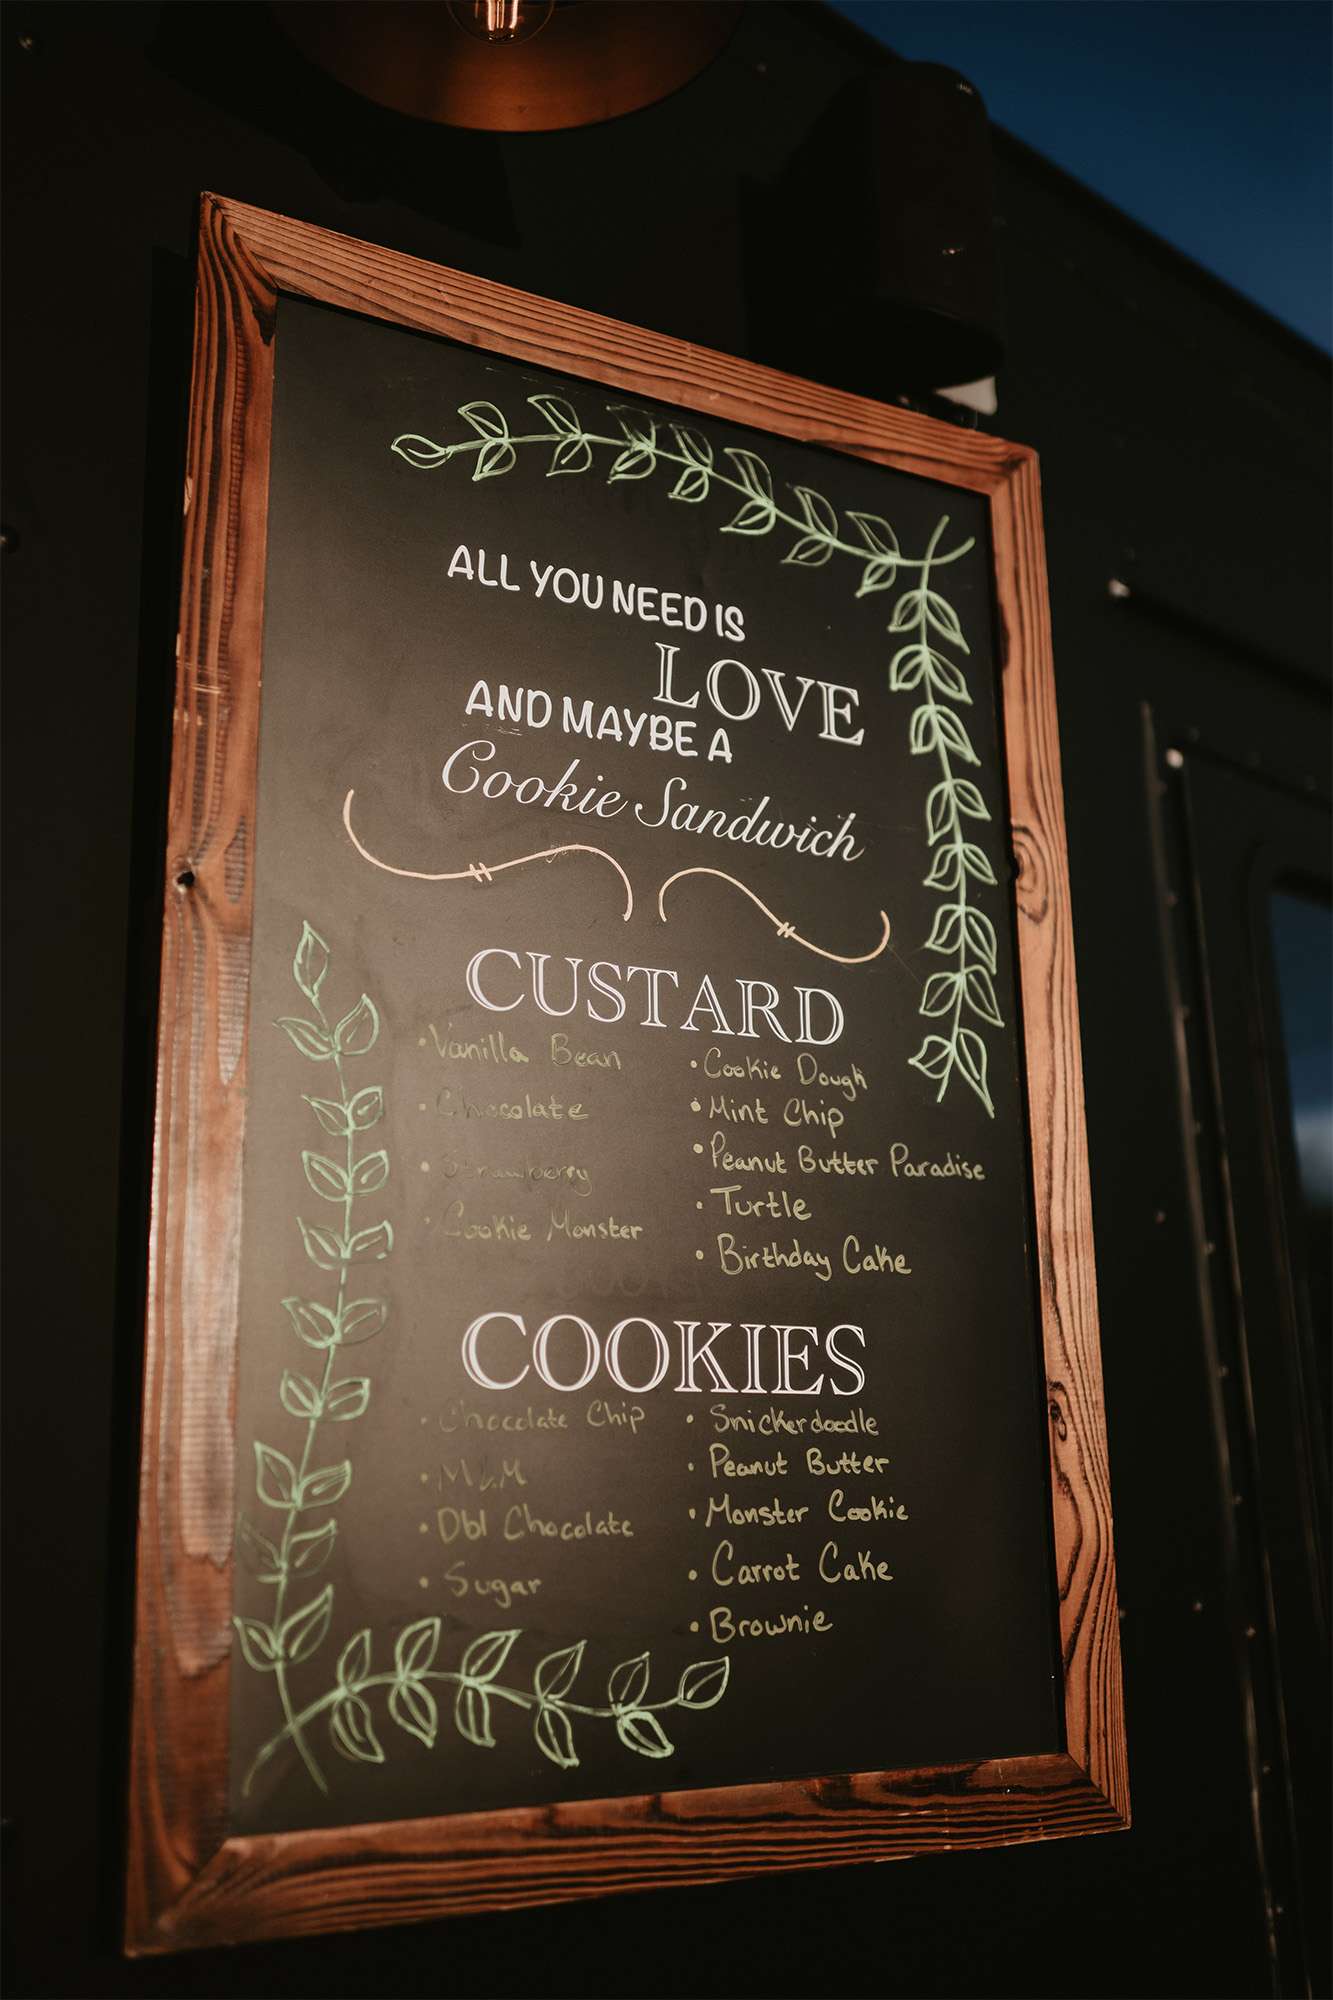 ALL YOU NEED IS
LOVE
AND MAYBE A
Cookie Sandwich
CUSTARD
• Vanilla Bean
• Chocolate
• Strawberry
• Cookie Monster
• Cookie Dough
• Mint Chip
• Peanut Butter Paradise
• Turtle
• Birthday Cake
COOKIES
• Chocolate Chip
• M&M
• Dbl Chocolate
• Sugar
• Snickerdoodle
• Peanut Butter
• Monster Cookie
• Carrot Cake
• Brownie